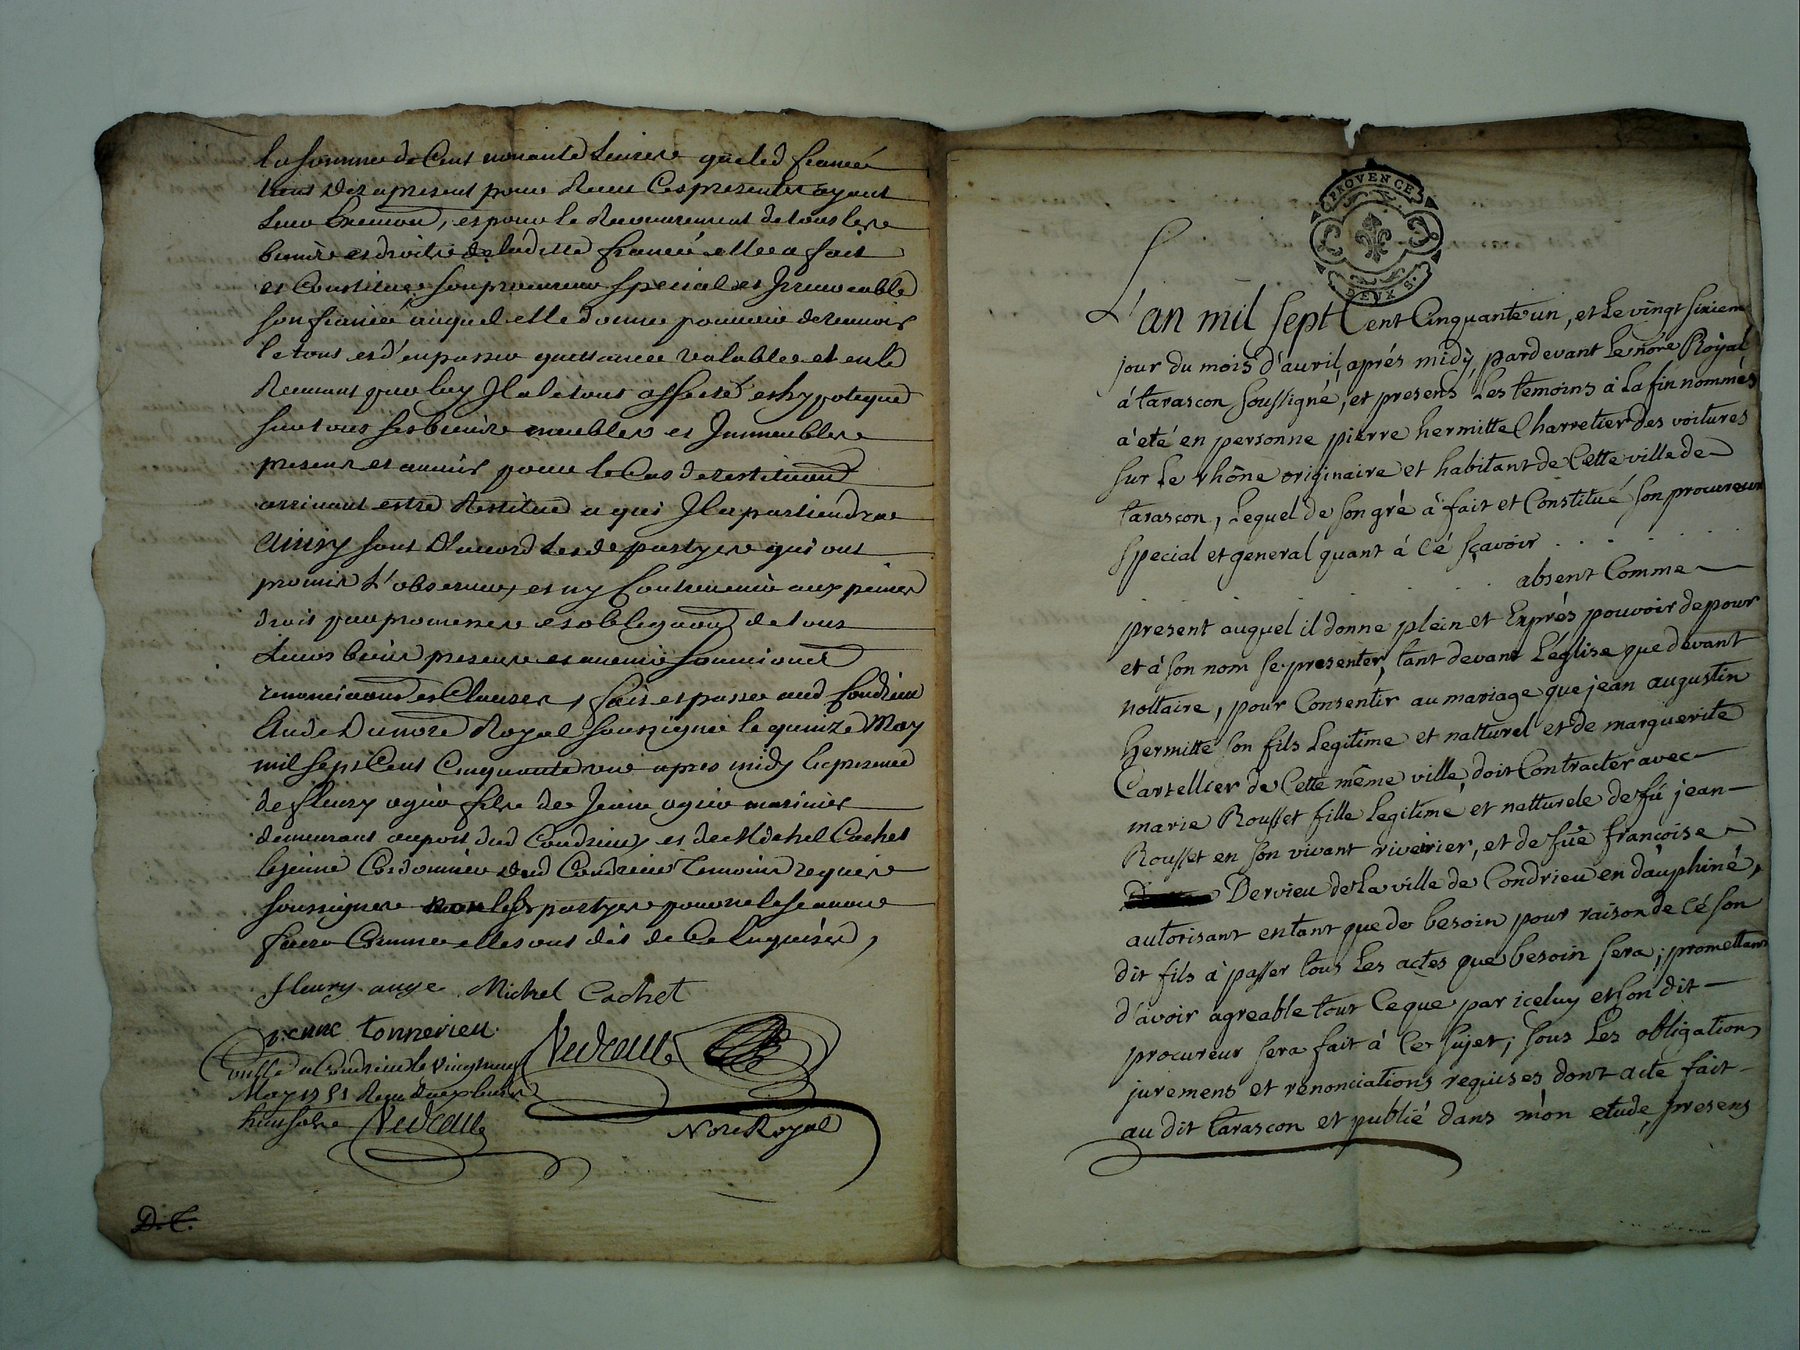 la somme de Cent nonante Livres que led fiancé
des a present pour Lieu Ces presentes ayant
Leur , et pour le Recouvrement de tous les
biens et droits de laditte fiancée elle a fait
et Constitué son procureur special et Irrevocable
son fiancé auquel elle donne pouvoir de
le tout et d'en passer quittance valable et en le
Recevant par luy Il a le tout affecté et hypotequé
sur tous ses biens meubles et Immeubles
presens et avenir pour le Cas de restitution
arrivant estre Restitué a qui Il apartiendra
ainsy sont D'acord Lesd partyes qui ont
promis L'observer et ny Contrevenir aux peines
droit par promesse et obligaon de tous
Leurs biens presens et avenir soumissions
renonciaons et Clauses, fait et passé aud Condrieu
Etude Du nore Royal soussigné le quinze May
mil sept Cent Cinquante un apres midy En presence
de fleury ogier fils de Jean ogier marinier
demeurant au port dud Condrieu et de Michel Cachet
le jeune Cordonnier dud Condrieu Temoins requis
soussignes non les partyes pour ne le scavoir
faire Comme elles ont dit de Ce Enquises,
fleury augé Michel Cachet
tonnerieu
Conllé a Condrieu le vingt
May 1751 Reçu
Nore Royal
D. C.
PROVENCE
DEUX S.
L'an mil sept Cent Cinquante un, et Le vingt sixiem
jour du mois d'avril, aprés midy, pardevant Le nore Royal
à tarascon soussigné, et presens Les temoins à La fin nommés
à eté en personne pierre hermitte Charretier des voitures
sur Le rhône originaire et habitant de Cette ville de
tarascon, Lequel de son gré à fait et Constitué son procureur
special et general quant à cé sçavoir . . . . .
. . . . absent Comme
present auquel il donne plein et Exprés pouvoir de pour
et à son nom se presenter, tant devant L'église que devant
nottaire, pour Consentir au mariage que jean augustin
hermitte son fils Legitime et natturel et de marguerite
Cartellier de Cette même ville doit Contracter avec
marie Rousset fille Legitime, et natturele de fû jean
Rousset en son vivant riverier, et de fûe françoise
Dervieu de La ville de Condrieu en dauphiné,
autorisant en tant que de besoin pour raison de cé son
dit fils à passer tous Les actes que besoin sera; promettant
d'avoir agreable tout Ceque par iceluy et son dit
procureur sera fait à Ce sujet; sous Les obligations
juremens et renonciations requises dont acte fait
au dit tarascon et publié dans mon etude, presens